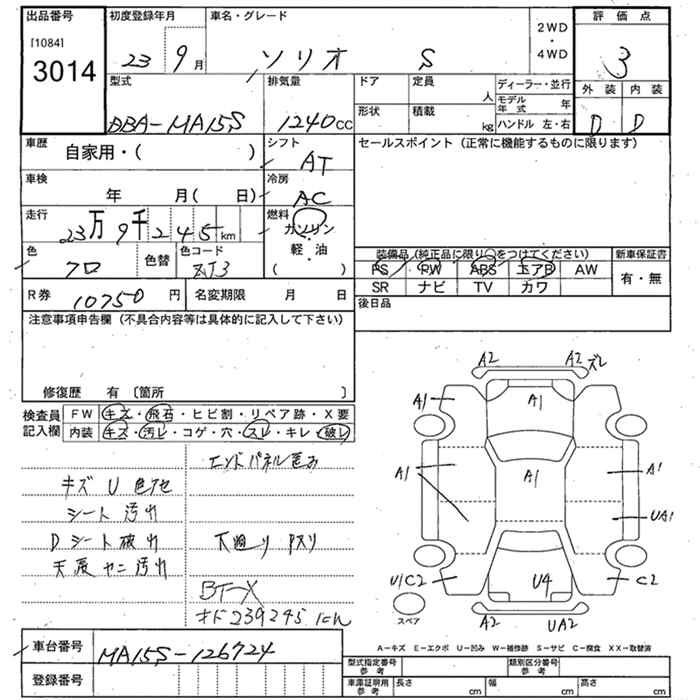 出品番号 初度登録年月 車名・グレード 評価点
[1084] 3014 23 9月 ソリオ S 2WD・4WD 3
型式 排気量 ドア 定員 人 ディーラー・並行 外装 内装
DBA-MA15S 1240cc 形状 積載 kg モデル年式 年 ハンドル 左・右 D D
車歴 自家用・( ) シフト AT セールスポイント (正常に機能するものに限ります)
車検 年 月( 日) 冷房 AC
走行 23万9千245km 燃料 ガソリン・軽油 ( )
色 クロ 色替 色コード ZJ3 装備品 (純正品に限り○をつけてください) 新車保証書
PS PW ABS エアB AW 有・無
R券 10750円 名変期限 月 日 SR ナビ TV カワ
注意事項申告欄 (不具合内容等は具体的に記入して下さい) 後日品
修復歴 有 〔箇所 〕
検査員記入欄 FW キズ・飛石・ヒビ割・リペア跡・X要
内装 キズ・汚レ・コゲ・穴・スレ・キレ・破レ
エンドパネル歪み
キズ U 色アセ
シート 汚れ
Dシート 破れ 下廻り サスリ
天張 ヤニ 汚れ
BT-X
オド239245km
A2 A2 ズレ
A1 A1
A1 A1 A1
UA1
U/C2 U4 C2
スペア A2 UA2
A-キズ E-エクボ U-凹み W-補修跡 S-サビ C-腐食 XX-取替済
車台番号 MA15S-126724
型式指定番号 参考 類別区分番号 参考
登録番号 車庫証明用 参考 長さ cm 幅 cm 高さ cm